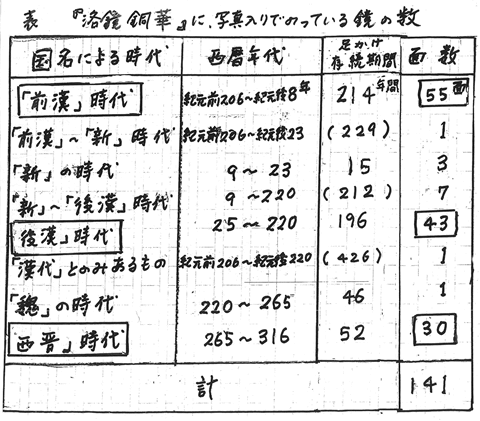 表 『洛鏡銅華』に、写真入りでのっている鏡の数
国名による時代 西暦年代 足かけ存続期間 面数
「前漢」時代 紀元前206〜紀元後8年 214年間 55面
「前漢」〜「新」時代 紀元前206〜紀元後23 (229) 1
「新」の時代 9〜23 15 3
「新」〜「後漢」時代 9〜220 (212) 7
後漢」時代 25〜220 196 43
「漢代」とのみあるもの 紀元前206〜紀元後220 (426) 1
「魏」の時代 220〜265 46 1
西晋」時代 265〜316 52 30
計 141